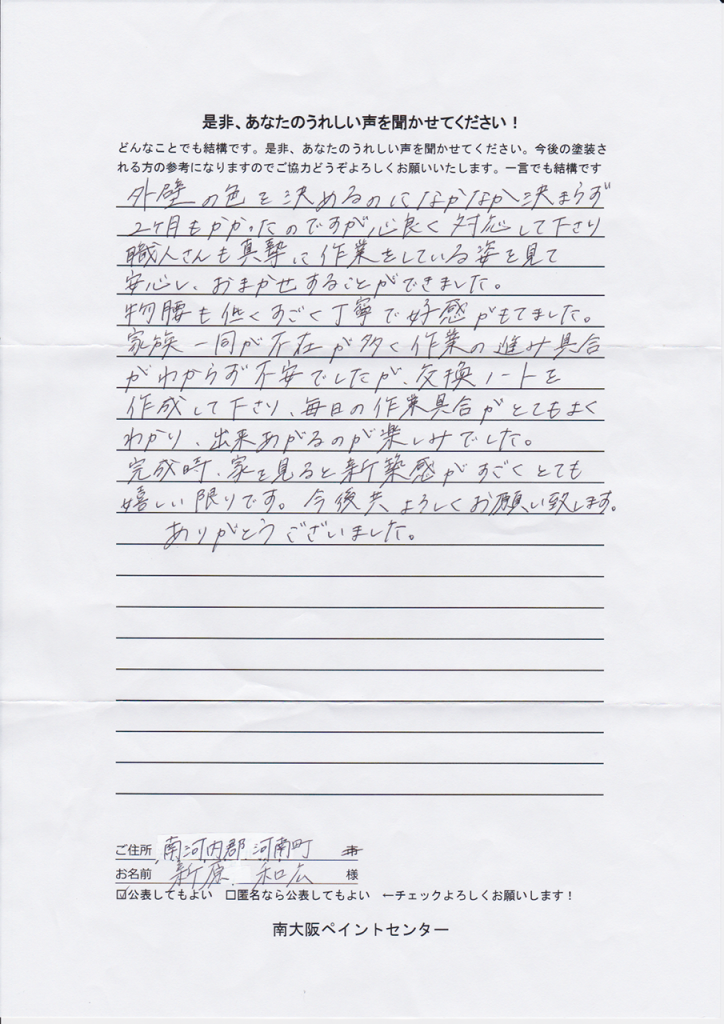 是非、あなたのうれしい声を聞かせてください！
どんなことでも結構です。是非、あなたのうれしい声を聞かせてください。今後の塗装さ
れる方の参考になりますのでご協力どうぞよろしくお願いいたします。一言でも結構です
外壁の色を決めるのになかなか決まらず
2ヶ月もかかったのですが心良く対応して下さり
職人さんも真摯に作業をしている姿を見て
安心し、おまかせすることができました。
物腰も低くすごく丁寧で好感がもてました。
家族一同が不在が多く作業の進み具合
がわからず不安でしたが、交換ノートを
作成して下さり、毎日の作業具合がとてもよく
わかり、出来あがるのが楽しみでした。
完成時、家を見ると新築感がすごくとても
嬉しい限りです。今後共よろしくお願い致します。
ありがとうございました。
ご住所 南河内郡河南町 市
お名前 新原 和広 様
☑公表してもよい □匿名なら公表してもよい ←チェックよろしくお願いします！
南大阪ペイントセンター